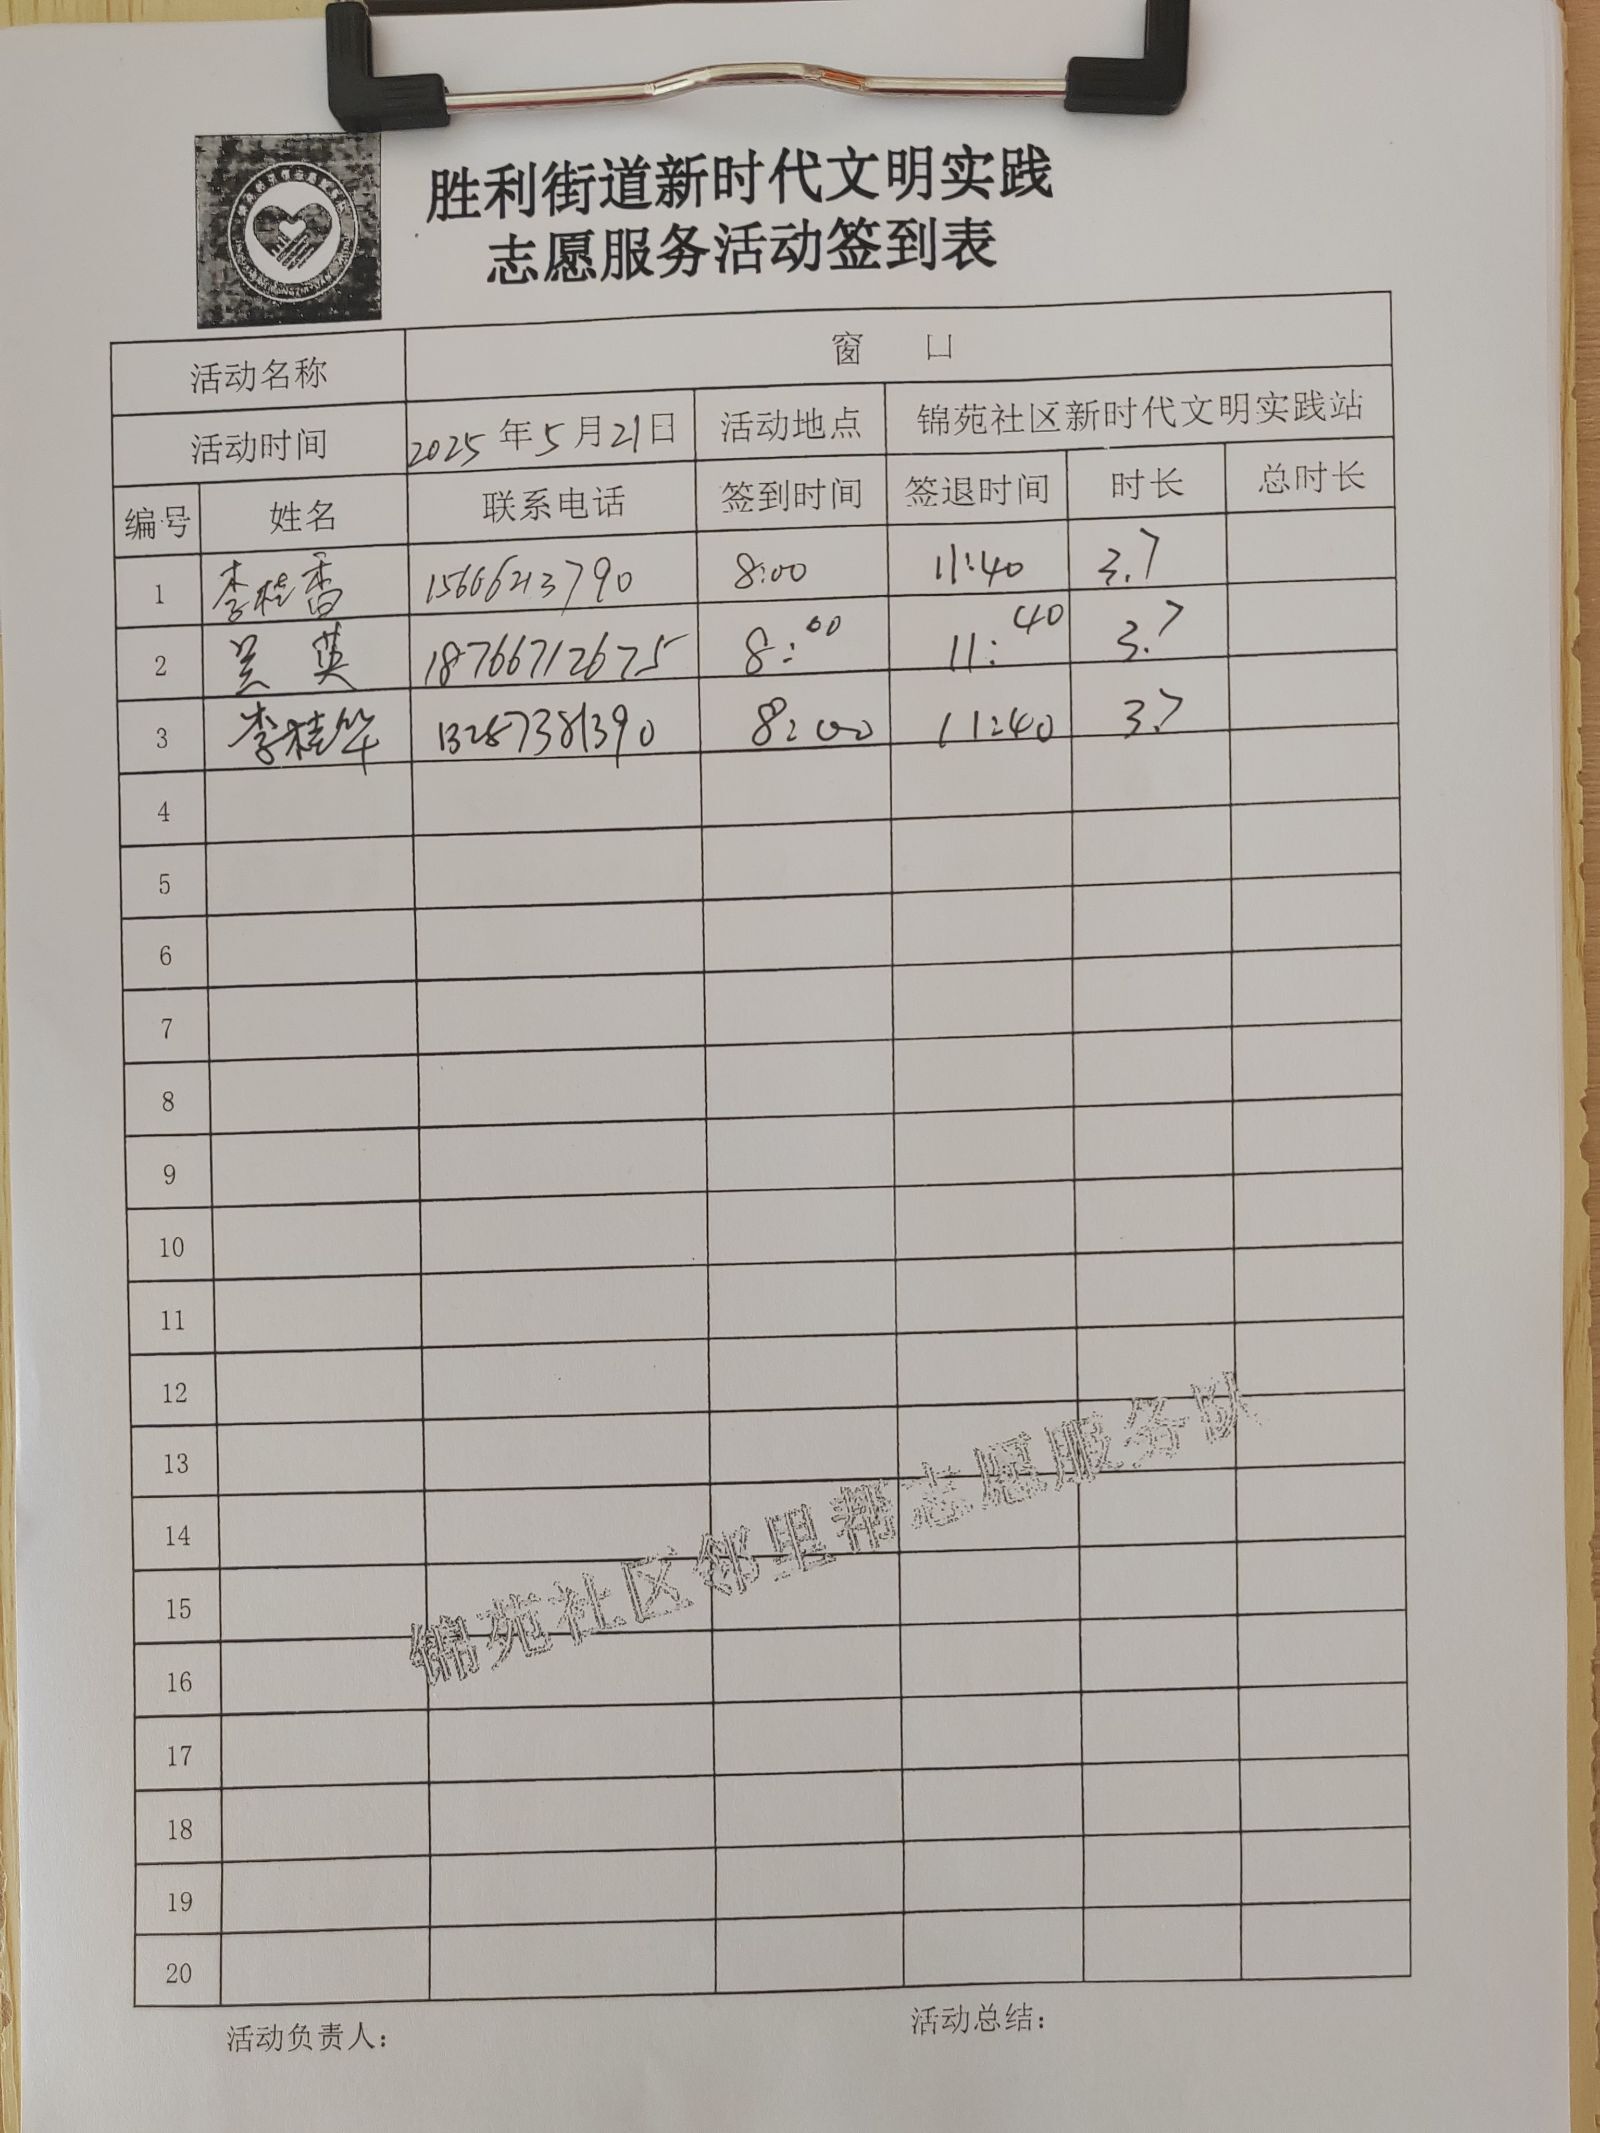 胜利街道新时代文明实践
志愿服务活动签到表
活动名称 窗 口
活动时间 2025年5月21日 活动地点 锦苑社区新时代文明实践站
编号 姓名 联系电话 签到时间 签退时间 时长 总时长
1 李桂香 15666213790 8:00 11:40 3.7
2 吴英 18766712675 8:00 11:40 3.7
3 李桂华 13287381390 8:00 11:40 3.7
4
5
6
7
8
9
10
11
12
13
14
15
16
17
18
19
20
锦苑社区邻里帮志愿服务队
活动负责人: 活动总结: